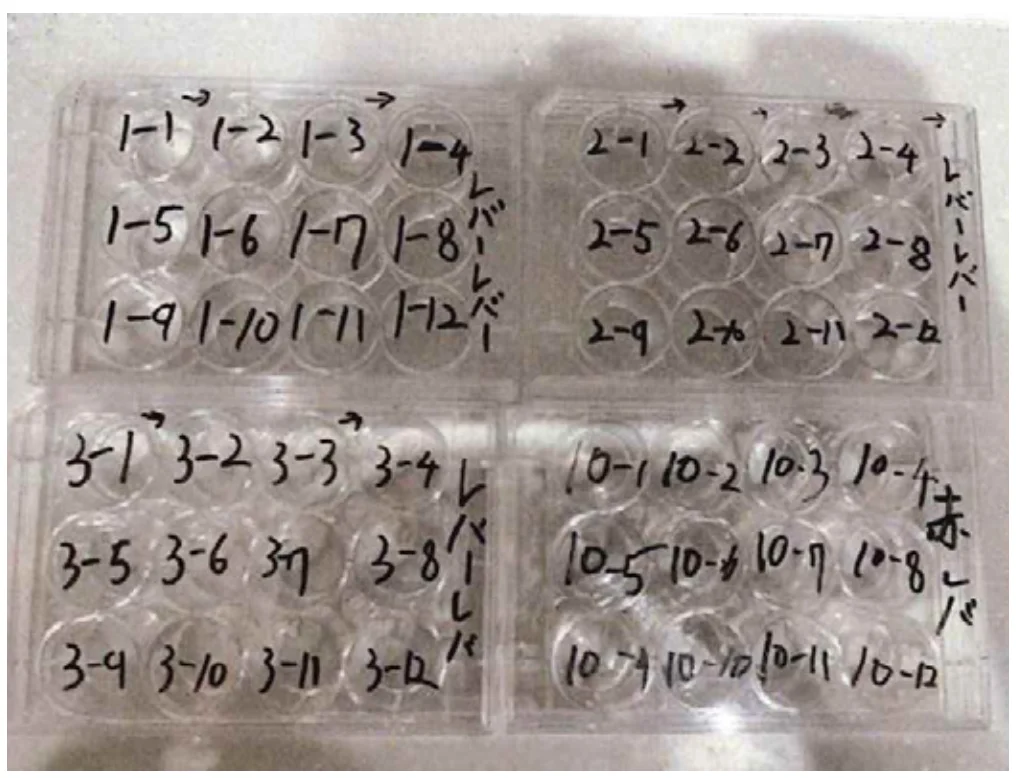 1-1 → 1-2 1-3 → 1-4
1-5 1-6 1-7 1-8
1-9 1-10 1-11 1-12
レバーレバー
2-1 → 2-2 → 2-3 2-4 →
2-5 2-6 2-7 2-8
2-9 2-10 2-11 2-12
レバーレバー
3-1 → 3-2 3-3 → 3-4
3-5 3-6 3-7 3-8
3-9 3-10 3-11 3-12
レバーレバ
10-1 10-2 10-3 10-4
10-5 10-6 10-7 10-8
10-9 10-10 10-11 10-12
赤レバ